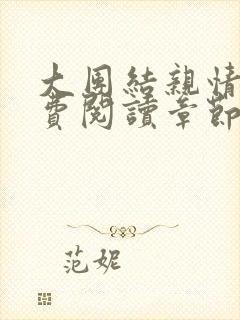 大團結親情
費閱讀章節
范妮